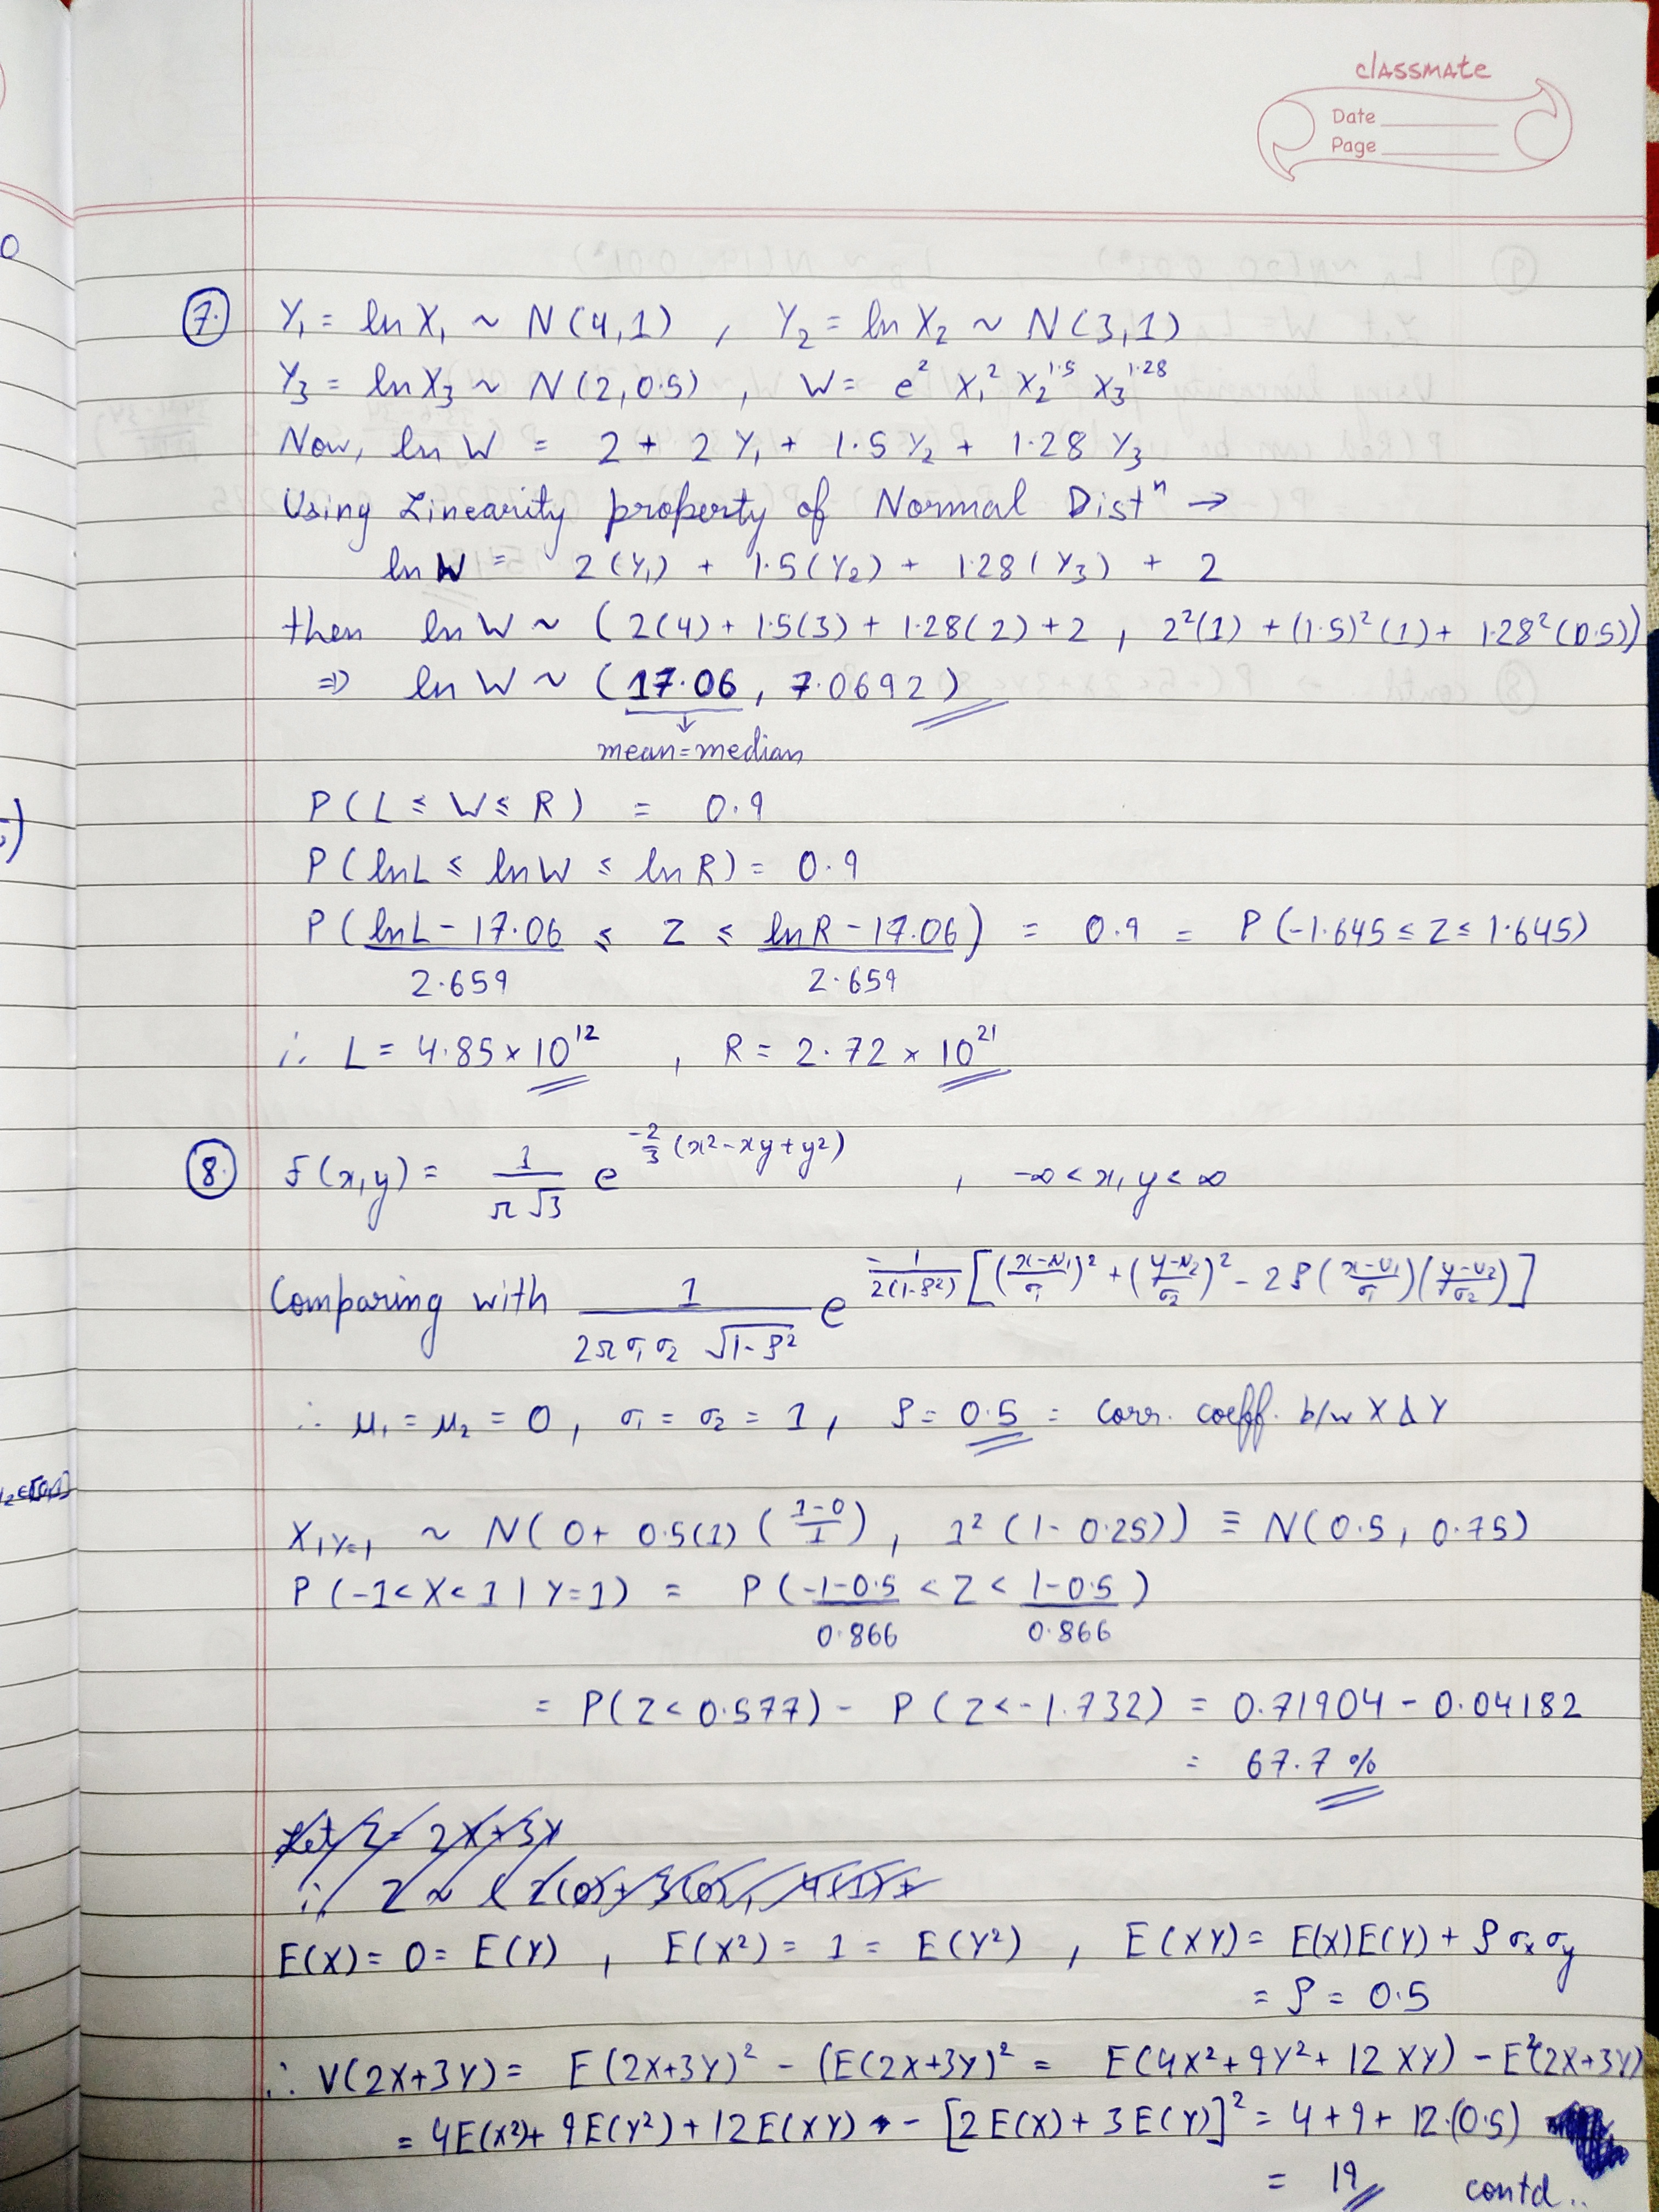 classmate
Date
Page
7. Y₁ = ln X₁ ~ N(4,1) , Y₂ = ln X₂ ~ N(3,1)
Y₃ = ln X₃ ~ N(2, 0.5) , W = e² X₁² X₂^1.5 X₃^1.28
Now, ln W = 2 + 2 Y₁ + 1.5 Y₂ + 1.28 Y₃
Using Linearity property of Normal Distⁿ →
ln W = 2(Y₁) + 1.5(Y₂) + 1.28(Y₃) + 2
then ln W ~ (2(4) + 1.5(3) + 1.28(2) + 2 , 2²(1) + (1.5)²(1) + 1.28²(0.5))
⇒ ln W ~ (17.06, 7.0692)
↓
mean = median
P(L ≤ W ≤ R) = 0.9
P(ln L ≤ ln W ≤ ln R) = 0.9
P((ln L − 17.06)/2.659 ≤ Z ≤ (ln R − 17.06)/2.659) = 0.9 = P(−1.645 ≤ Z ≤ 1.645)
∴ L = 4.85 × 10¹² , R = 2.72 × 10²¹
8. f(x,y) = 1/(π√3) e^(−2/3 (x² − xy + y²)) , −∞ < x, y < ∞
Comparing with 1/(2π σ₁ σ₂ √(1−ρ²)) e^(−1/(2(1−ρ²)) [((x−μ₁)/σ₁)² + ((y−μ₂)/σ₂)² − 2ρ((x−μ₁)/σ₁)((y−μ₂)/σ₂)])
∴ μ₁ = μ₂ = 0, σ₁ = σ₂ = 1, ρ = 0.5 = Corr. coeff. b/w X & Y
X|Y=1 ~ N(0 + 0.5(1)((1−0)/1), 1²(1 − 0.25)) ≡ N(0.5, 0.75)
P(−1 < X < 1 | Y = 1) = P((−1−0.5)/0.866 < Z < (1−0.5)/0.866)
= P(Z < 0.577) − P(Z < −1.732) = 0.71904 − 0.04182
= 67.7 %
Let Z = 2X + 3Y
E(X) = 0 = E(Y) , E(X²) = 1 = E(Y²) , E(XY) = E(X)E(Y) + ρ σx σy
= ρ = 0.5
∴ V(2X+3Y) = E(2X+3Y)² − (E(2X+3Y)² = E(4X² + 9Y² + 12 XY) − E²(2X+3Y)
= 4E(X²) + 9E(Y²) + 12E(XY) − [2E(X) + 3E(Y)]² = 4 + 9 + 12.(0.5)
= 19 contd..